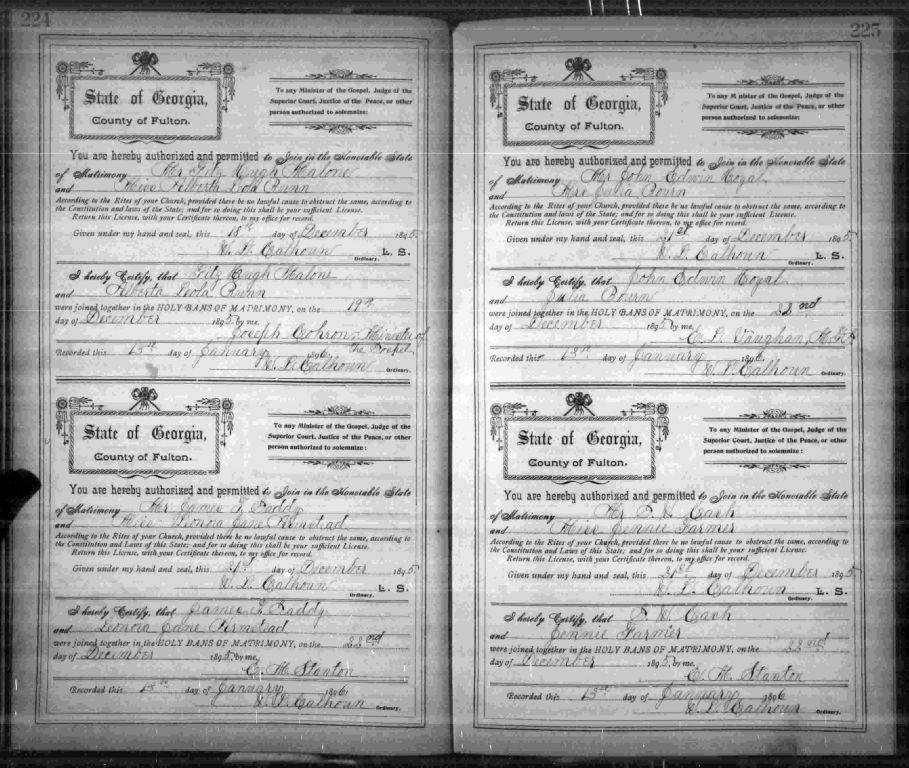 224
State of Georgia,
County of Fulton.
To any Minister of the Gospel, Judge of the
Superior Court, Justice of the Peace, or other
person authorized to solemnize:
You are hereby authorized and permitted to Join in the Honorable State
of Matrimony Mr Fitz Hugh Malone
and Miss Alberta Leola Bunn
According to the Rites of your Church, provided there be no lawful cause to obstruct the same, according to the
Constitution and laws of the State; and for so doing this shall be your sufficient License.
Return this License, with your Certificate thereon, to my office for record.
Given under my hand and seal, this 18th day of December 1895
W. L. Calhoun L. S.
Ordinary.
I hereby Certify, that Fitz Hugh Malone
and Alberta Leola Bunn
were joined together in the HOLY BANS OF MATRIMONY, on the 19th
day of December 1895, by me,
Joseph Cohron, Minister of
the Gospel
Recorded this 13th day of January 1896
W. L. Calhoun Ordinary.
State of Georgia,
County of Fulton.
To any Minister of the Gospel, Judge of the
Superior Court, Justice of the Peace, or other
person authorized to solemnize:
You are hereby authorized and permitted to Join in the Honorable State
of Matrimony Mr James F. Paddy
and Miss Leonora Jane Armstead
According to the Rites of your Church, provided there be no lawful cause to obstruct the same, according to the
Constitution and Laws of this State; and for so doing this shall be your sufficient License.
Return this License, with your Certificate thereon, to my office for record.
Given under my hand and seal, this 21st day of December 1895
W. L. Calhoun L. S.
Ordinary.
I hereby Certify, that James F. Paddy
and Leonora Jane Armstead
were joined together in the HOLY BANS OF MATRIMONY, on the 22nd
day of December 1895, by me,
C. M. Stanton
Recorded this 13th day of January 1896
W. L. Calhoun Ordinary.
225
State of Georgia,
County of Fulton.
To any Minister of the Gospel, Judge of the
Superior Court, Justice of the Peace, or other
person authorized to solemnize:
You are hereby authorized and permitted to Join in the Honorable State
of Matrimony Mr John Edwin Cogal
and Mrs Julia Bourn
According to the Rites of your Church, provided there be no lawful cause to obstruct the same, according to
the Constitution and laws of this State; and for so doing this shall be your sufficient License.
Return this License, with your Certificate thereon, to my office for record.
Given under my hand and seal, this 21st day of December 1895
W. L. Calhoun L. S.
Ordinary.
I hereby Certify, that John Edwin Cogal
and Julia Bourn
were joined together in the HOLY BANS OF MATRIMONY, on the 22nd
day of December 1895 by me,
C. L. Vaughan, M. G.
Recorded this 13th day of January 1896
W. L. Calhoun Ordinary.
State of Georgia,
County of Fulton.
To any Minister of the Gospel, Judge of the
Superior Court, Justice of the Peace, or other
person authorized to solemnize:
You are hereby authorized and permitted to Join in the Honorable State
of Matrimony Mr P. W. Cash
and Miss Jennie Farmer
According to the Rites of your Church, provided there be no lawful cause to obstruct the same, according to the
Constitution and Laws of this State; and for so doing this shall be your sufficient License.
Return this License, with your Certificate thereon, to my office for record.
Given under my hand and seal, this 21st day of December 1895
W. L. Calhoun L. S.
Ordinary.
I hereby Certify, that P. W. Cash
and Jennie Farmer
were joined together in the HOLY BANS OF MATRIMONY, on the 22nd
day of December 1895, by me,
C. M. Stanton
Recorded this 13th day of January 1896
W. L. Calhoun Ordinary.